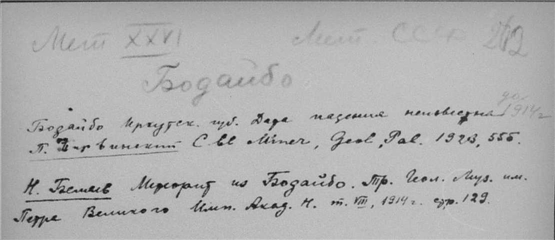 Мет XXVI Мет. СССР
Бодайбо
до 1914 г
Бодайбо Иркутск. губ. Дата падения неизвестна
П. Cbl Miner, Geol, Pal. 1923, 555.
Н. Беляев Метеорит из Бодайбо. Тр. Геол. Муз. им.
Петра Великого Имп. Акад. Н. т. VIII, 1914 г. стр. 129.